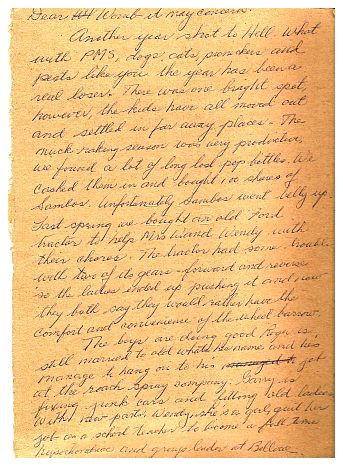 Dear Womb it may concern:
Another year shot to Hell. What
with PMS, dogs, cats, and
pests like you the year has been a
real loser. There was one bright spot,
however, the kids have all moved out
and settled in far away places. The
muck raking season was very productive,
we found a lot of long lost pop bottles. We
cashed them in and bought 100 shares of
Sambos. Unfortunately Sambos went belly up.
Last spring we bought an old Ford
tractor to help Mrs W and Wendy with
their chores. The tractor had some trouble
with two of its gears - forward and reverse
so the ladies ended up pushing it and now
they both say they would rather have the
comfort and convenience of the wheel barrow.
The boys are doing good. Roger is
still married to old whats her name and has
manage to hang on to his job
at the roach spray company. Garry is
fixing junk cars and fitting old ladies
with new parts. Wendy, she is a girl, quit her
job as a school teacher to become a full time
and group leader at